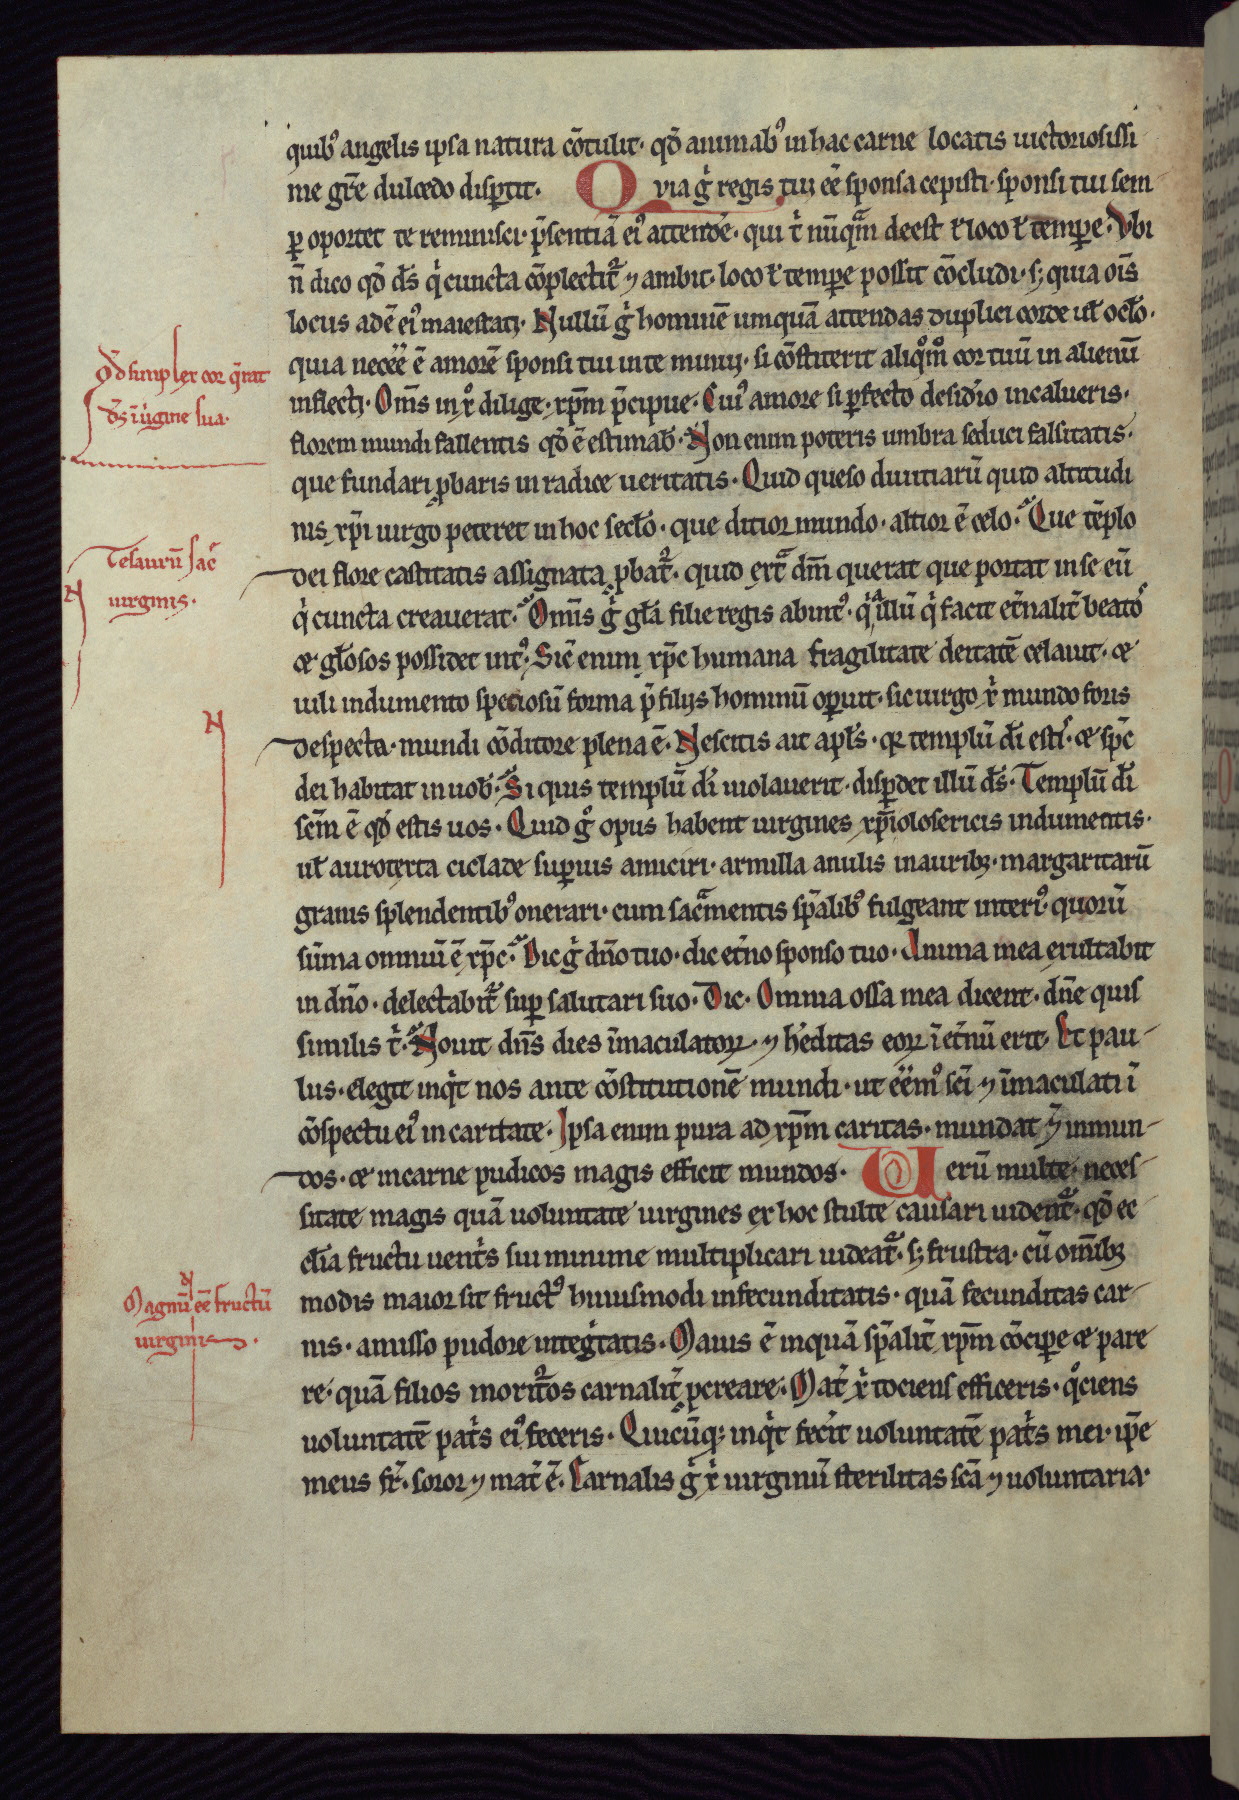 quib᷒ angelis ipsa natura cōtulit· qđ animab᷒ in hac carne locatis uictoriosissi
me gr̄e dulcedo dispertit· Quia gͥ regis tui eē sponsa cepisti· sponsi tui sem
ꝑ oportet te reminisci· p̄sentiā ei᷒ attende· qui tͥ nūqᷓm deest ł loco ł tempe· Vbi
n̄ dico qđ d̄s qͥ cuncta cōplectitᷣ ⁊ ambit· loco ł tempe possit cōcludi· sꝫ quia oīs
locus adē ei᷒ maiestatꝫ· Nullū gͥ hominē umquā attendas duplici corde uł oclo·
quia necēē ē amorē sponsi tui in te minuꝫ· si cōstiterit aliqͦm̊ cor tuū in alienū
inflectꝫ· Om̄s in xͦ dilige· xp̄m p̄cipue· Cui᷒ amore si ꝑfecto desidͥo incalueris·
florem mundi fallentis qđ ē estimab̄· Non enim poteris umbra seduci falsitatis·
que fundari ꝓbaris in radice ueritatis· Quid queso diuitiarū quid altitudi
nis xp̄i uirgo peteret in hoc seclo· que ditior mundo· altior ē celo· Que tēplo
dei flore castitatis assignata ꝓbatᷣ· quid extᷓ dm̄ querat que portat in se eū
qͥ cuncta creauerat· Omīs gͥ gła filie regis abint᷒· qͥa illū qͥ facit et̄nalit̄ beatos
⁊ głosos possidet int᷒· Sic̄ enim xp̄c humana fragilitate deitatē celauit· ⁊
uili indumento speciosū forma p̄ filijs hominū oꝑuit· sic uirgo xͥ mundo foris
despecta· mundi cōditore plena ē· Nescitis ait apłs· qꝛ templū dī estis· ⁊ sp̄c
dei habitat in uob̄· Si quis templū dī uiolauerit· disꝑdet illū d̄s· Templū dī
sc̄m ē qđ estis uos· Quid gͦ opus habent uirgines xp̄i olosericis indumentis·
uł auro texta ciclade suꝑius amiciri· armilla anulis inauribꝫ· margaritarū
granis splendentib᷒ onerari· cum sacᷓmentis sp̄alib᷒ fulgeant interi᷒· quorū
sūma omniū ē xp̄c· Dic gͥ dn̄o tuo· dic et̄no sponso tuo· Anima mea exultabit
in dn̄o· delectabitᷣ suꝑ salutari suo· Dic· Omnia ossa mea dicent· dn̄e quis
similis tͥ· Nouit dn̄s dies īmaculatoꝝ· ⁊ hͥeditas eoꝝ ī et̄nū erit· Et pau-
lus· elegit inqͥt nos ante cōstitutionē mundi· ut eēm᷒ sc̄i ⁊ īmaculati ī
cōspectu ei᷒ in caritate· Ipsa enim pura ad xp̄m caritas· mundat ⁊ inmun-
dos· ⁊ in carne pudicos magis efficit mundos· Uerū multe neces-
sitate magis quā uoluntate uirgines ex hoc stulte causari uidentᷣ· qđ ec
clīa fructu uentͥs sui minime multiplicari uideatᷣ· sꝫ frustra· cū omībꝫ
modis maior sit fruct᷒ huiusmodi infecunditatis· quā fecunditas car-
nis· amisso pudore integͥtatis· Maius ē inquā sp̄alit̄ xp̄m cōciꝑe ⁊ pare
re· quā filios moritᷣos carnalit̄ ꝓcreare· Mat̄ xͥ tociens efficeris· qͦciens
uoluntatē patͥs ei᷒ feceris· Quicūqꝫ inqͥt fecīt uoluntatē patͥs mei· ip̄e
meus fr̄· soror ⁊ mat̄ ē· Carnalis gͥ xͥ uirginū sterilitas sc̄a ⁊ uoluntaria·
Qđ simplex cor q̄rat
d̄s ī ūgine sua·
Tesaurū sac̄
uirginis·
Magnū eē fructū
uirginis·